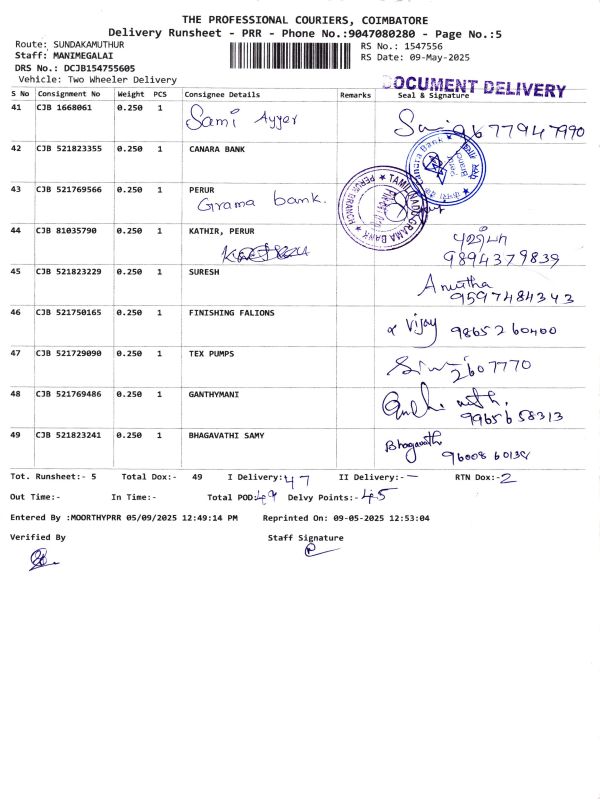 THE PROFESSIONAL COURIERS, COIMBATORE
Delivery Runsheet - PRR - Phone No.:9047080280 - Page No.:5
Route: SUNDAKAMUTHUR
Staff: MANIMEGALAI
DRS No.: DCJB154755605
Vehicle: Two Wheeler Delivery
RS No.: 1547556
RS Date: 09-May-2025
DOCUMENT DELIVERY
S No Consignment No Weight PCS Consignee Details Remarks Seal & Signature
41 CJB 1668061 0.250 1 Sami Ayyer 9677947990
42 CJB 521823355 0.250 1 CANARA BANK
Canara Bank
43 CJB 521769566 0.250 1 PERUR
Grama bank.
TAMILNADU GRAMA BANK
PERUR BRANCH
44 CJB 81035790 0.250 1 KATHIR, PERUR
9894379839
45 CJB 521823229 0.250 1 SURESH Anutha
9597484343
46 CJB 521750165 0.250 1 FINISHING FALIONS Vijay 9865260400
47 CJB 521729090 0.250 1 TEX PUMPS
2607770
48 CJB 521769486 0.250 1 GANTHYMANI
9965658313
49 CJB 521823241 0.250 1 BHAGAVATHI SAMY Bhagavathi
9600860138
Tot. Runsheet:- 5 Total Dox:- 49 I Delivery:- 47 II Delivery:- - RTN Dox:- 2
Out Time:- In Time:- Total POD:- 49 Delvy Points:- 45
Entered By :MOORTHYPRR 05/09/2025 12:49:14 PM Reprinted On: 09-05-2025 12:53:04
Verified By Staff Signature